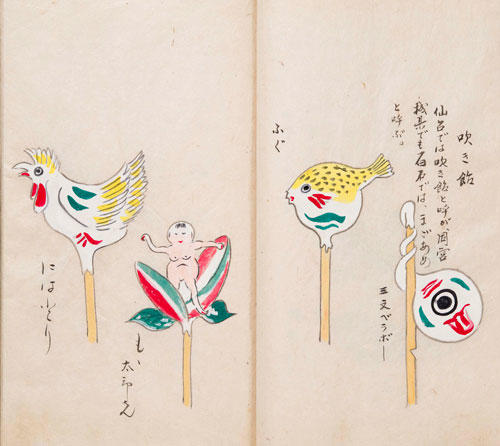 吹き飴
仙台では吹き飴と呼が、同宮
城県でも白石では、まごあめ
と呼ぶ。
三文べらボー
ふぐ
もゝ
太郎さん
にはとり